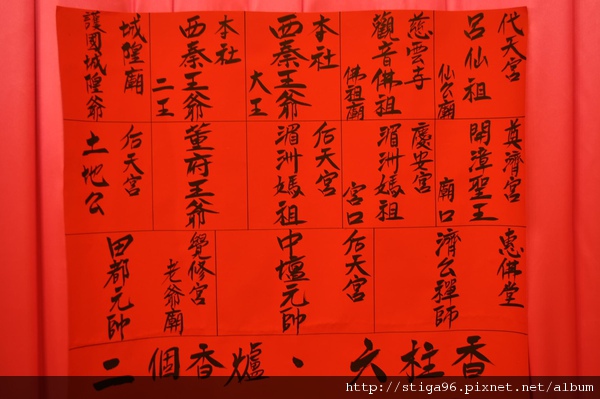 代天宮
呂仙祖
仙公廟
慈雲寺
觀音佛祖
佛祖廟
本社
西秦王爺
大王
本社
西秦王爺
二王
城隍廟
護國城隍爺
真濟宮
開漳聖王
廟口
慶安宮
湄洲媽祖
宮口
后天宮
湄洲媽祖
董府王爺
后天宮
土地公
惠佛堂
濟公禪師
后天宮
中壇元帥
覺修宮
老爺廟
田都元帥
二個香爐、六柱香
http://stiga96.pixnet.net/album